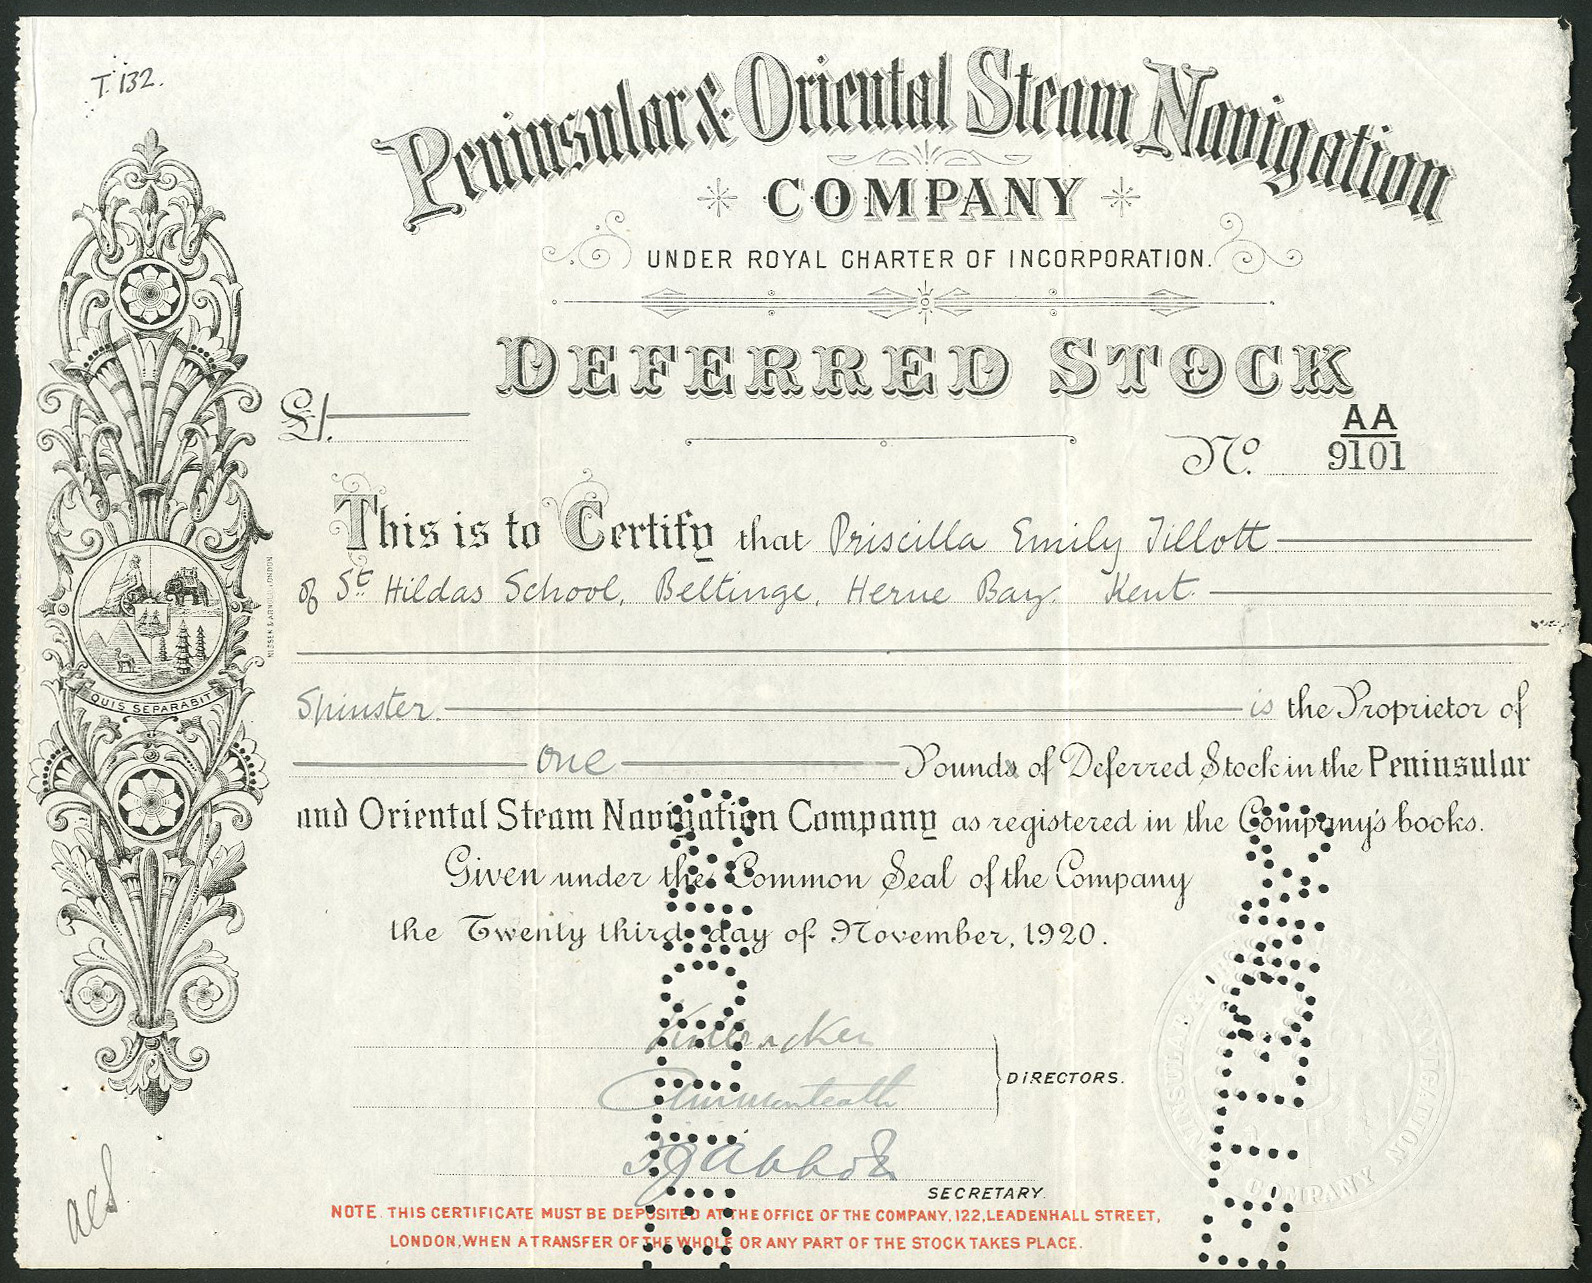 T. 132.
Peninsular & Oriental Steam Navigation
COMPANY
UNDER ROYAL CHARTER OF INCORPORATION.
DEFERRED STOCK
£1.
AA
No. 9101
This is to Certify that Priscilla Emily Tillott
of St Hildas School, Beltinge, Herne Bay. Kent.
NISSEN & ARNOLD, LONDON
Spinster. is the Proprietor of
QUIS SEPARABIT
one Pounds of Deferred Stock in the Peninsular
and Oriental Steam Navigation Company as registered in the Company's books.
Given under the Common Seal of the Company
the Twenty third day of November, 1920.
DIRECTORS.
SECRETARY.
NOTE. THIS CERTIFICATE MUST BE DEPOSITED AT THE OFFICE OF THE COMPANY, 122, LEADENHALL STREET,
LONDON, WHEN A TRANSFER OF THE WHOLE OR ANY PART OF THE STOCK TAKES PLACE.